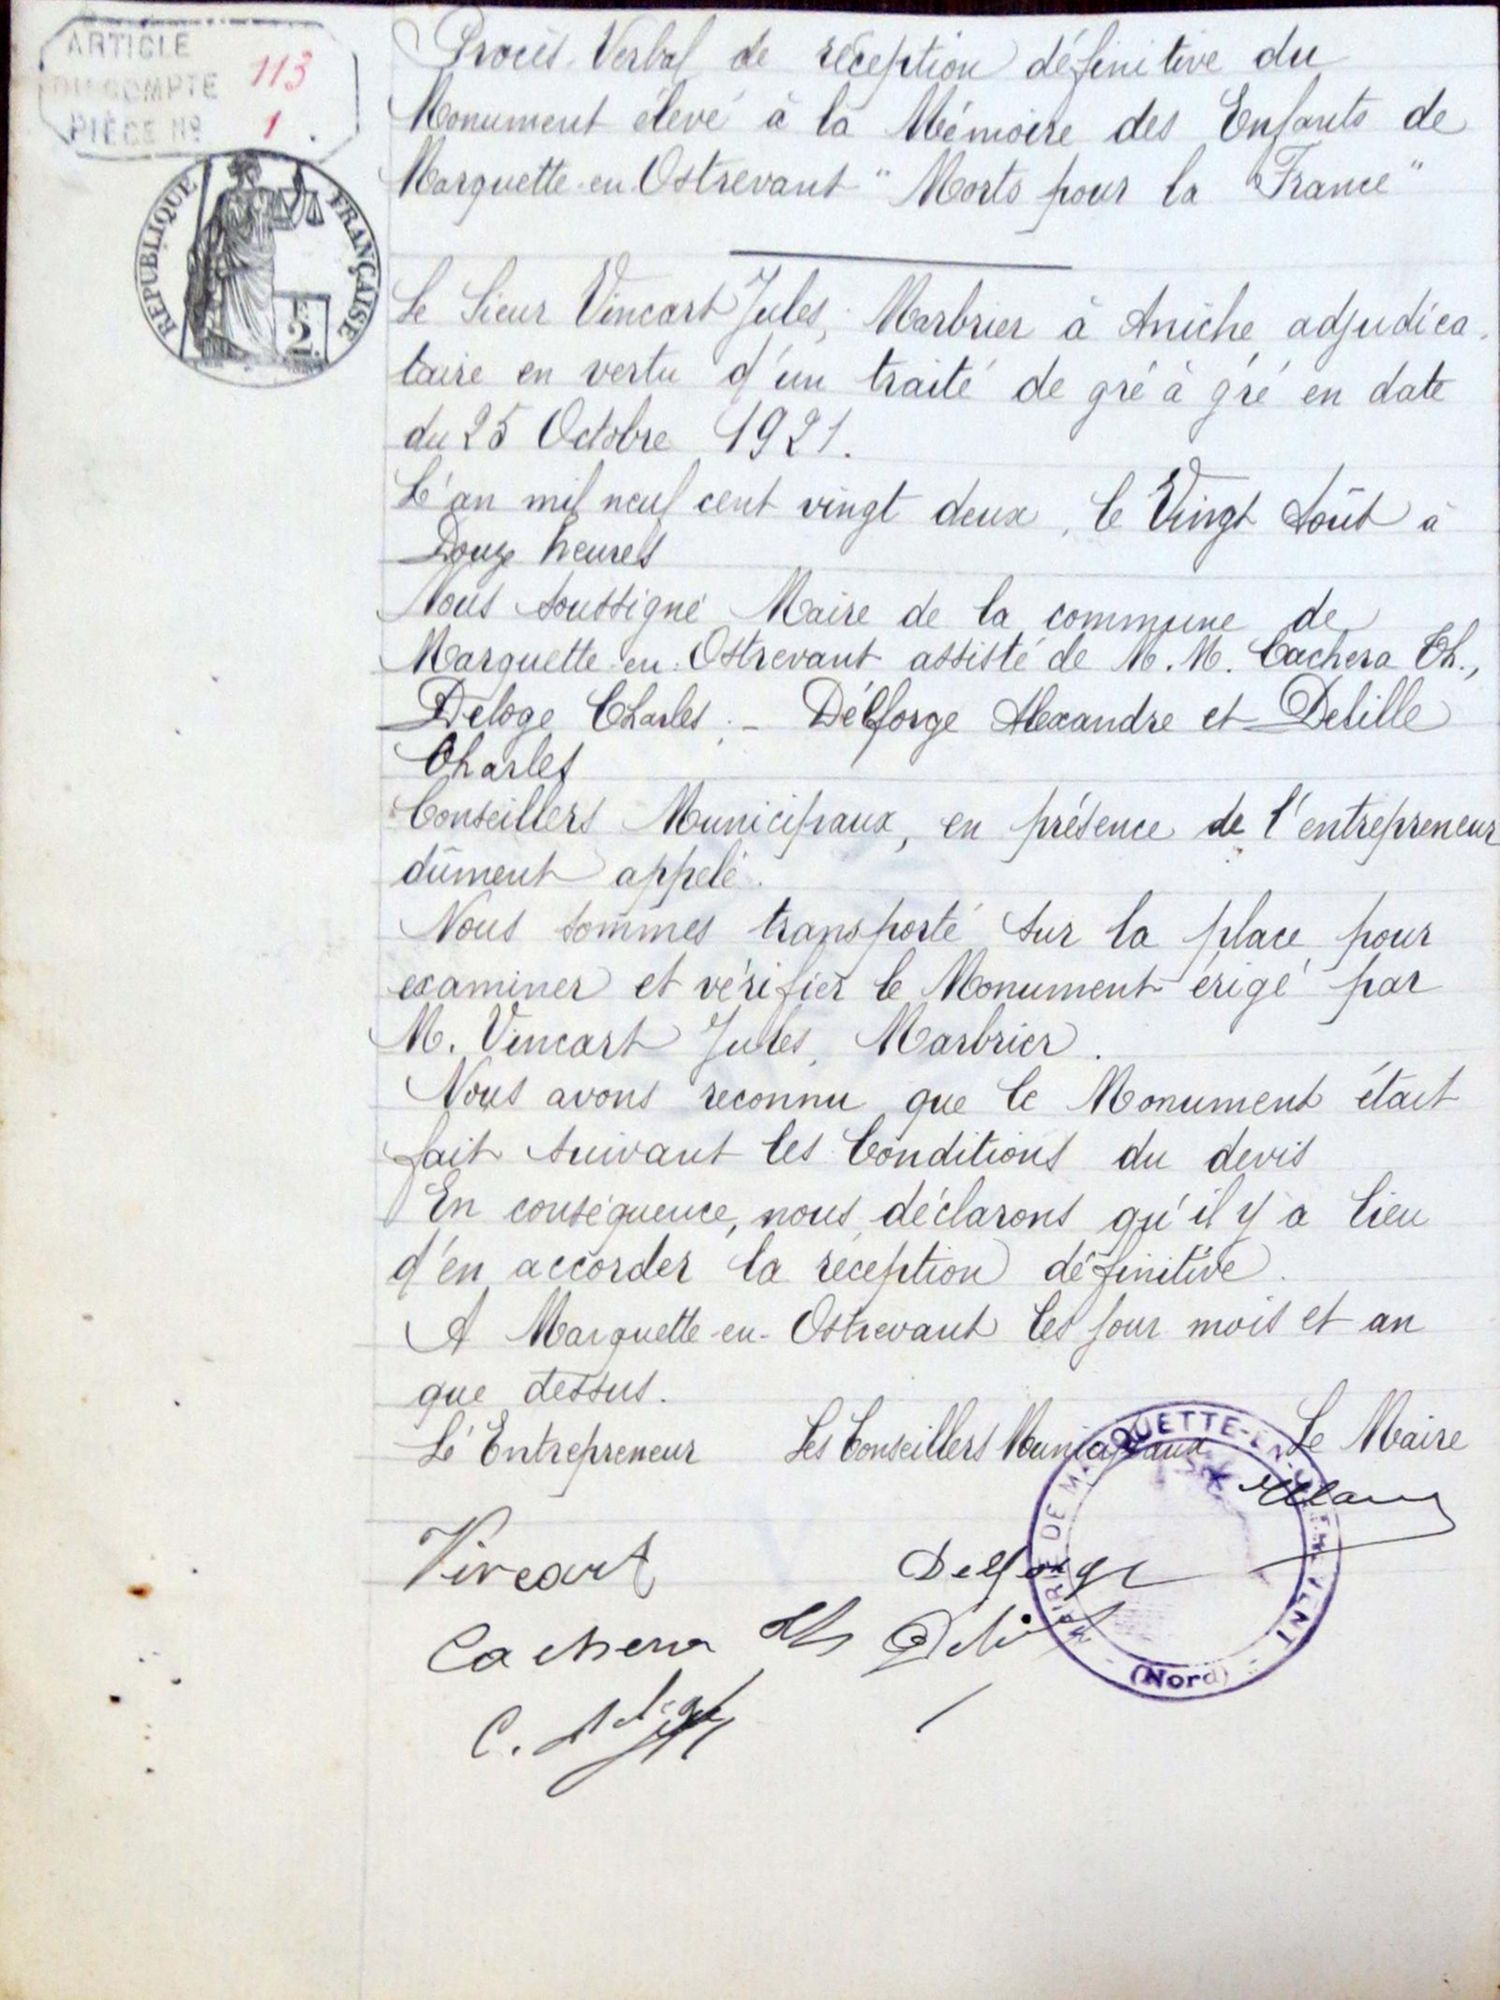 ARTICLE
DU COMPTE 113
PIÈCE No 1.
RÉPUBLIQUE FRANÇAISE
2
Procès-Verbal de réception définitive du
Monument élevé à la Mémoire des Enfants de
Marquette-en-Ostrevant "Morts pour la France"
Le Sieur Vincart Jules, Marbrier à Aniche adjudica-
taire en vertu d'un traité de gré à gré en date
du 25 Octobre 1921.
L'an mil neuf cent vingt deux, le Vingt Août à
Douze heures
Nous soussigné Maire de la commune de
Marquette-en-Ostrevant assisté de M.M. Cachera Th.,
Deloge Charles, - Délforge Alexandre et Delille
Charles
Conseillers Municipaux, en présence de l'entrepreneur
dûment appelé.
Nous sommes transporté sur la place pour
examiner et vérifier le Monument érigé par
M. Vincart Jules, Marbrier.
Nous avons reconnu que le Monument était
fait suivant les Conditions du devis
En conséquence, nous déclarons qu'il y a lieu
d'en accorder la réception définitive.
A Marquette-en-Ostrevant les jour mois et an
que dessus.
L'Entrepreneur Les Conseillers Municipaux Le Maire
MAIRIE DE MARQUETTE-EN-OSTREVENT
(Nord)
Vincart Delforge
Cachera Th
C.